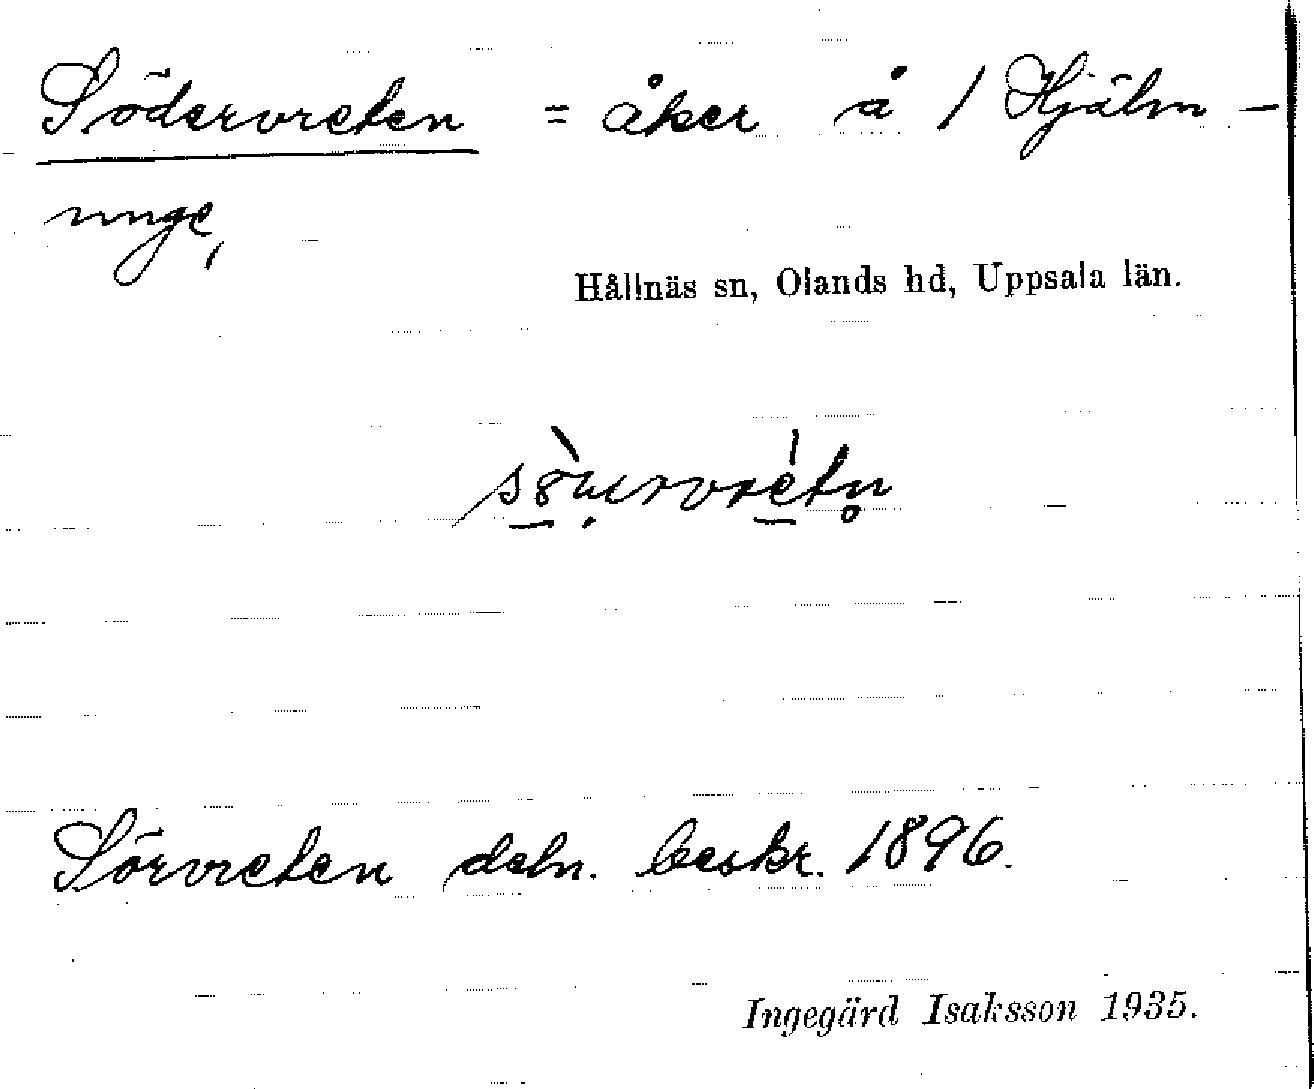 Södervreten = åker å 1 Hjälm-
unge,
Hållnäs sn, Olands hd, Uppsala län.
Sörvreten deln. beskr. 1896.
Ingegärd Isaksson 1935.